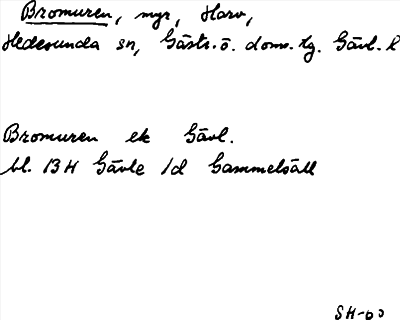 Bromuren, myr, Harv,
Hedesunda sn, Gästr.ö. doms.tg. Gävl. l
Bromuren ek Gävl.
bl. 13H Gävle 1d Gammelsäll
SH-60